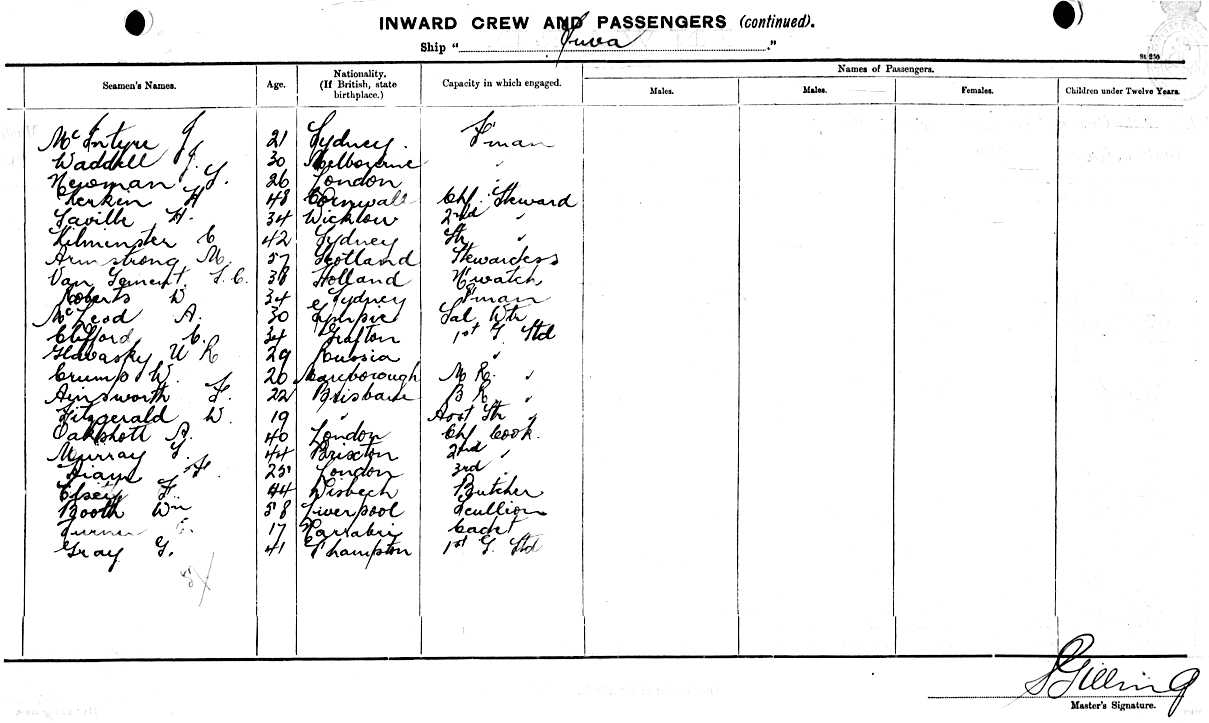 INWARD CREW AND PASSENGERS (continued).
Ship " Suva ."
St 250
Seamen's Names. Age. Nationality. (If British, state birthplace.) Capacity in which engaged. Names of Passengers.
Males. Males. Females. Children under Twelve Years.
McIntyre J 21 Sydney. F'man
Waddell J. 30 Melbourne "
Newman S. 26 London "
H 48 Cornwall Chf Steward
Saville H. 34 Wicklow 2nd "
Kilminster C 42 Sydney Str "
Armstrong M. 57 Scotland Stewardess
Van Gement. 38 Holland N'watch
Roberts W 34 Sydney F'man
McLeod A. 30 Gympie Sal Wtr
Clifford C. 34 Grafton 1st G. Std
29 Russia "
Crump W. 20 Maryborough M R. "
Ainsworth F. 22 Brisbane B R "
Fitzgerald W. 19 " Asst Str "
Oakshott A. 40 London Chf Cook.
Murray 44 Brixton 2nd "
F 25 London 3rd "
Elsey F. 44 Wisbech Butcher
Booth Wm 58 Liverpool Scullion
Turner 17 Narrabri Cadet
Gray G. 41 S'hampton 1st G. Std
S Gilling
Master's Signature.